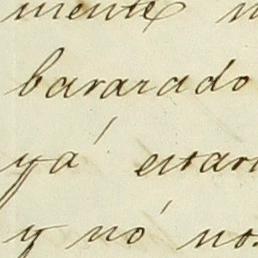 mente
bararado
yá estar
y nó no